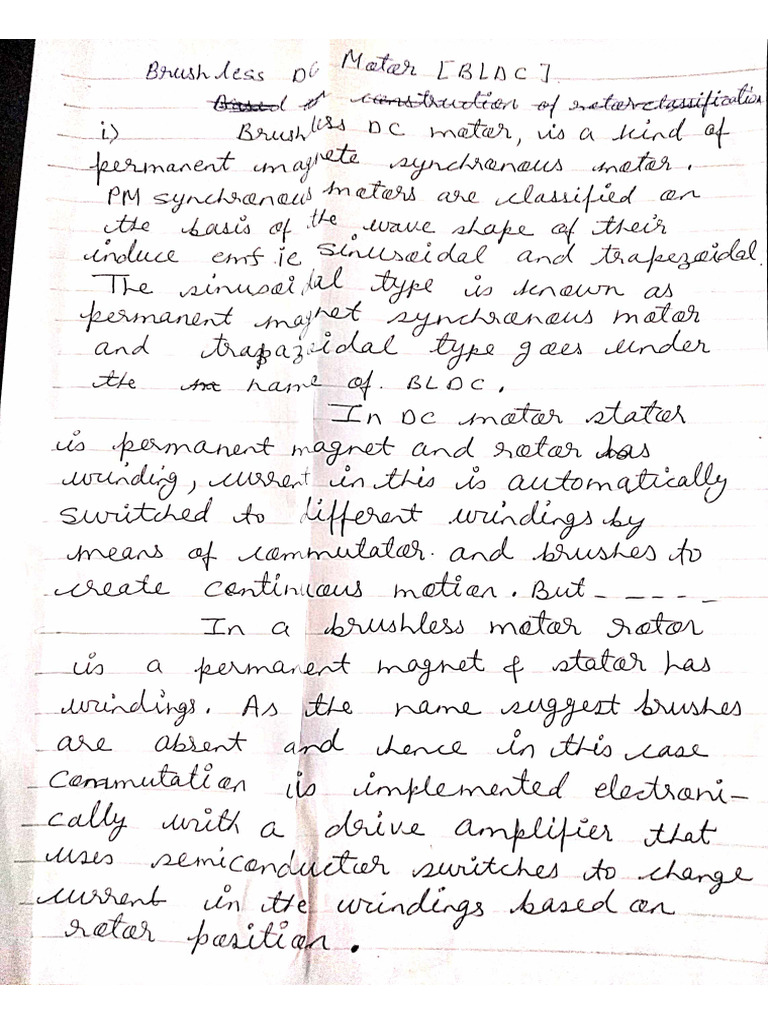 Brushless DC Motor [BLDC]
Based of construction of rotor classification
i) Brushless DC motor, is a kind of
permanent magnete synchronous motor.
PM synchronous motors are classified on
the basis of the wave shape of their
induce emf ie sinusoidal and trapezoidal.
The sinusoidal type is known as
permanent magnet synchronous motor
and trapazoidal type goes under
the name of. BLDC.
In DC motor stator
is permanent magnet and rotor has
winding, current in this is automatically
switched to different windings by
means of commutator. and brushes to
create continuous motion. But - - - - -
In a brushless motor rotor
is a permanent magnet & stator has
windings. As the name suggest brushes
are absent and hence in this case
commutation is implemented electroni-
cally with a drive amplifier that
uses semiconductor switches to change
current in the windings based on
rotor position.